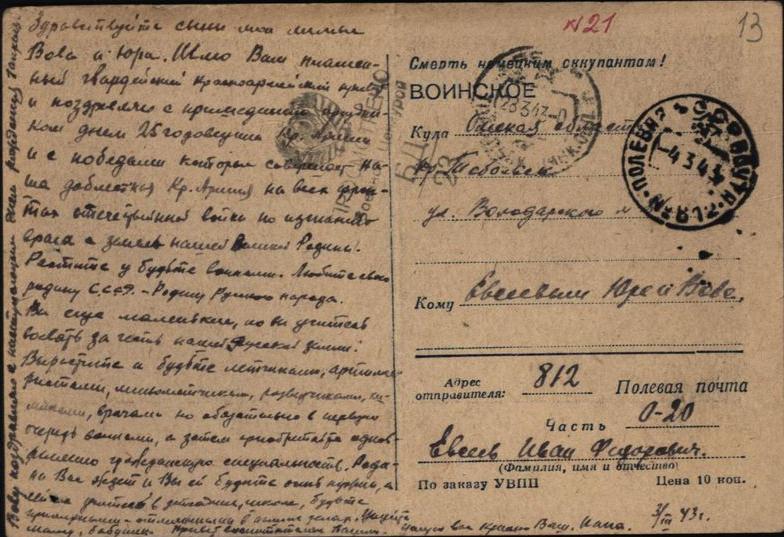 Здравствуйте сыны мои милые
Вова и Юра. Шлю Вам пламен-
ный гвардейский красноармейский привет
и поздравляю с
днем 25 годовщины Кр. Армии
и с победами которые совершает На-
ша доблестная Кр. Армия на всех фрон-
тах отечественной войны по изгнанию
врага с земель нашей Великой Родины.
Растите и будьте воинами. Любите свою
родину СССР. – Родину Русского народа.
Вы еще маленькие, но вы учитесь
воевать за честь нашей Русской земли.
Вырастите и будьте летчиками, артилле-
ристами, минометчиками, разведчиками, хи-
миками, врачами но обязательно в первую
очередь воинами, а затем приобретайте однов-
ременно гражданскую специальность. Роди-
на Вас ждет и Вы ей будете очень нужны, а
сейчас учитесь в детсадике, школе, будьте
примерными – отличными в
маму, бабушку. Привет Целую вас крепко Ваш Папа. 3/III 43г.
Вову поздравляю с наступающим днем рождения
№21
13
Смерть немецким оккупантам!
ВОИНСКОЕ
Куда Омская область
гр. Тобольск
ул. Володарского
Кому Евсеевым Юре и Вове.
Адрес отправителя: 812 Полевая почта
Часть 0-20
Евсеев Иван Федорович.
(Фамилия, имя и отчество)
По заказу УВПП Цена 10 коп.
СССР
ПОЛЕВАЯ ПОЧТА
-4 3 43
28 3 43